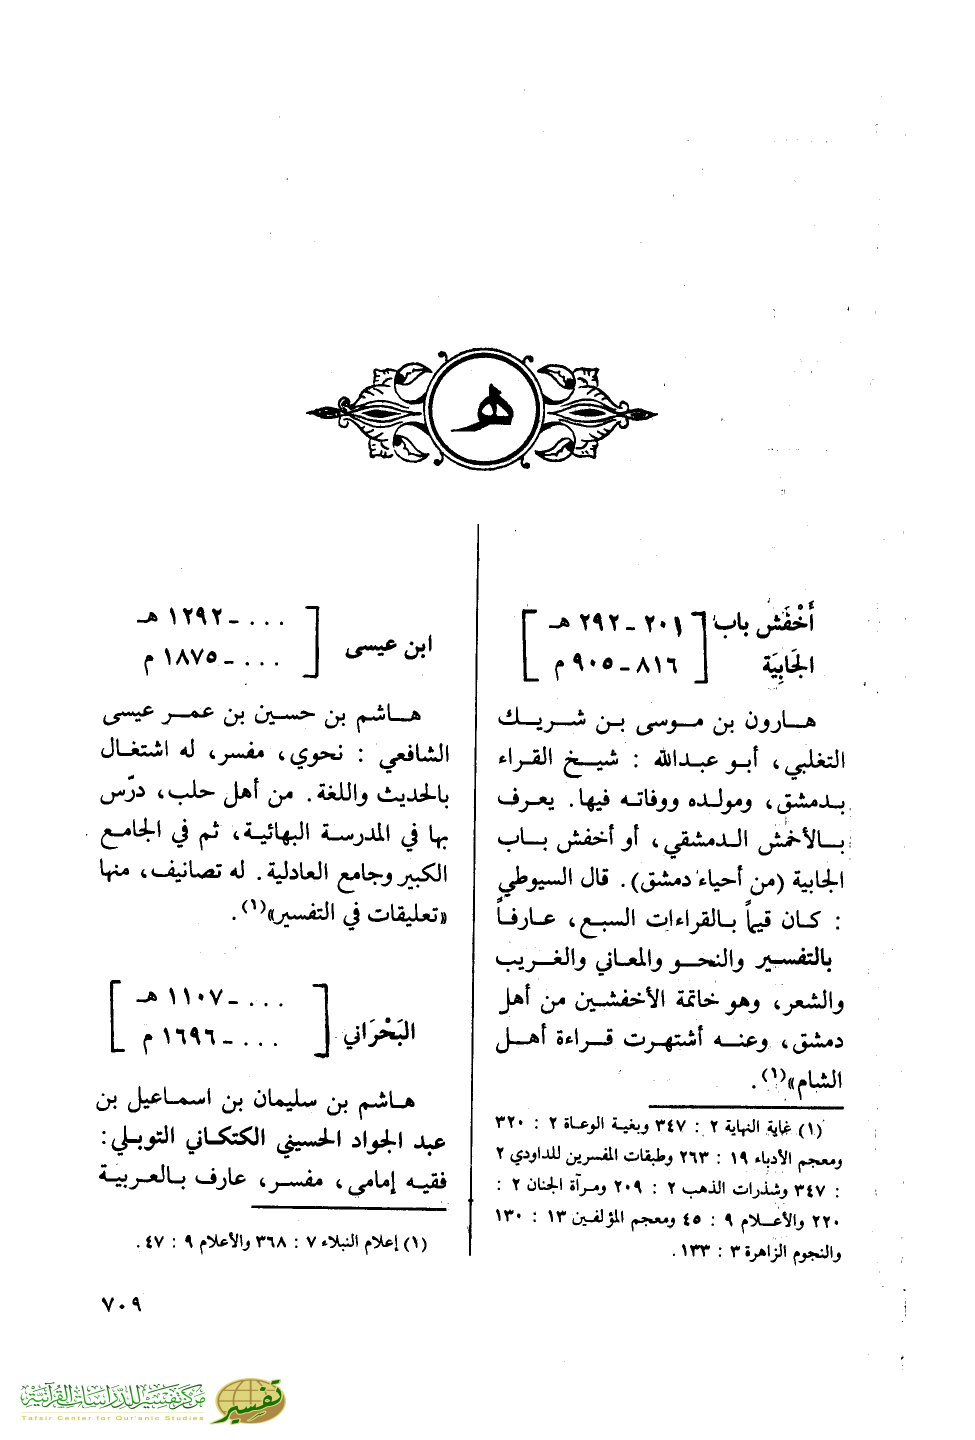 هـ
أَخْفَش باب [ ٢٠١ - ٢٩٢ هـ ]
الجَابِيَة [ ٨١٦ - ٩٠٥ م ]
هـارون بن مـوسى بـن شـريـك
التغلبي، أبـو عبـدالله : شيـخ القـراء
بـدمشق، ومولـده ووفاتـه فيها. يعـرف
بـالأخفش الـدمشقي، أو أخفش بـاب
الجابية (من أحياء دمشق). قال السيوطي
: كـان قيماً بـالقراءات السبـع، عـارفـاً
بالتفسير والنحـو والمعـاني والغـريب
والشعر، وهو خاتمة الأخفشين من أهل
دمشق، وعنـه أشتهرت قـراءة أهـل
الشام»(١).
(١) غاية النهاية ٢ : ٣٤٧ وبغية الوعاة ٢ : ٣٢٠
ومعجم الأدباء ١٩ : ٢٦٣ وطبقات المفسرين للداودي ٢
: ٣٤٧ وشذرات الذهب ٢ : ٢٠٩ ومـرآة الجنان ٢ :
٢٢٠ والأعـلام ٩ : ٤٥ ومعجم المؤلفـين ١٣ : ١٣٠
والنجوم الزاهرة ٣ : ١٣٣ .
ابن عيسى [ ... - ١٢٩٢ هـ ]
[ ... - ١٨٧٥ م ]
هـاشم بن حسـين بن عمـر عيسى
الشافعي : نحوي، مفسر، له اشتغال
بالحديث واللغة. من أهل حلب، درّس
بها في المدرسة البهائية، ثم في الجامع
الكبير وجامع العادلية. له تصانيف، منها
«تعليقات في التفسير»(١).
البَحْرَاني [ ... - ١١٠٧ هـ ]
[ ... - ١٦٩٦ م ]
هـاشم بن سليمان بن اسماعيل بن
عبد الجواد الحسيني الكتكاني التوبلي:
فقيه إمامي، مفسر، عارف بـالعربية
(١) إعلام النبلاء ٧ : ٣٦٨ والأعلام ٩ : ٤٧ .
٧٠٩
مركز تفسير للدراسات القرآنية
Tafsir Center for Qur'anic Studies
تفسير